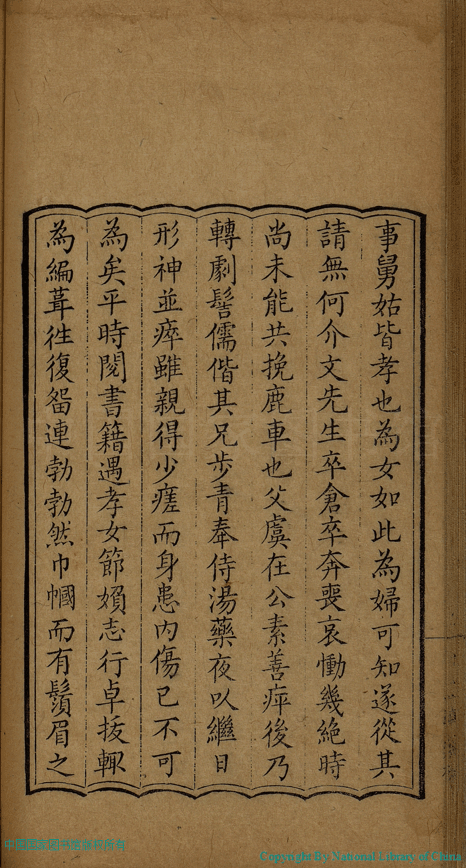 事舅姑皆孝也為女如此為婦可知遂從其
請無何介文先生卒倉卒奔喪哀慟幾絕時
尚未能共挽鹿車也父虞在公素善痺後乃
轉劇髻儒偕其兄步青奉侍湯藥夜以繼日
形神並瘁雖親得少瘥而身患內傷已不可
為矣平時閱書籍遇孝女節嬪志行卓拔輙
為編葺徃復畱連勃勃然巾幗而有鬚眉之
Copyright By National Library of China